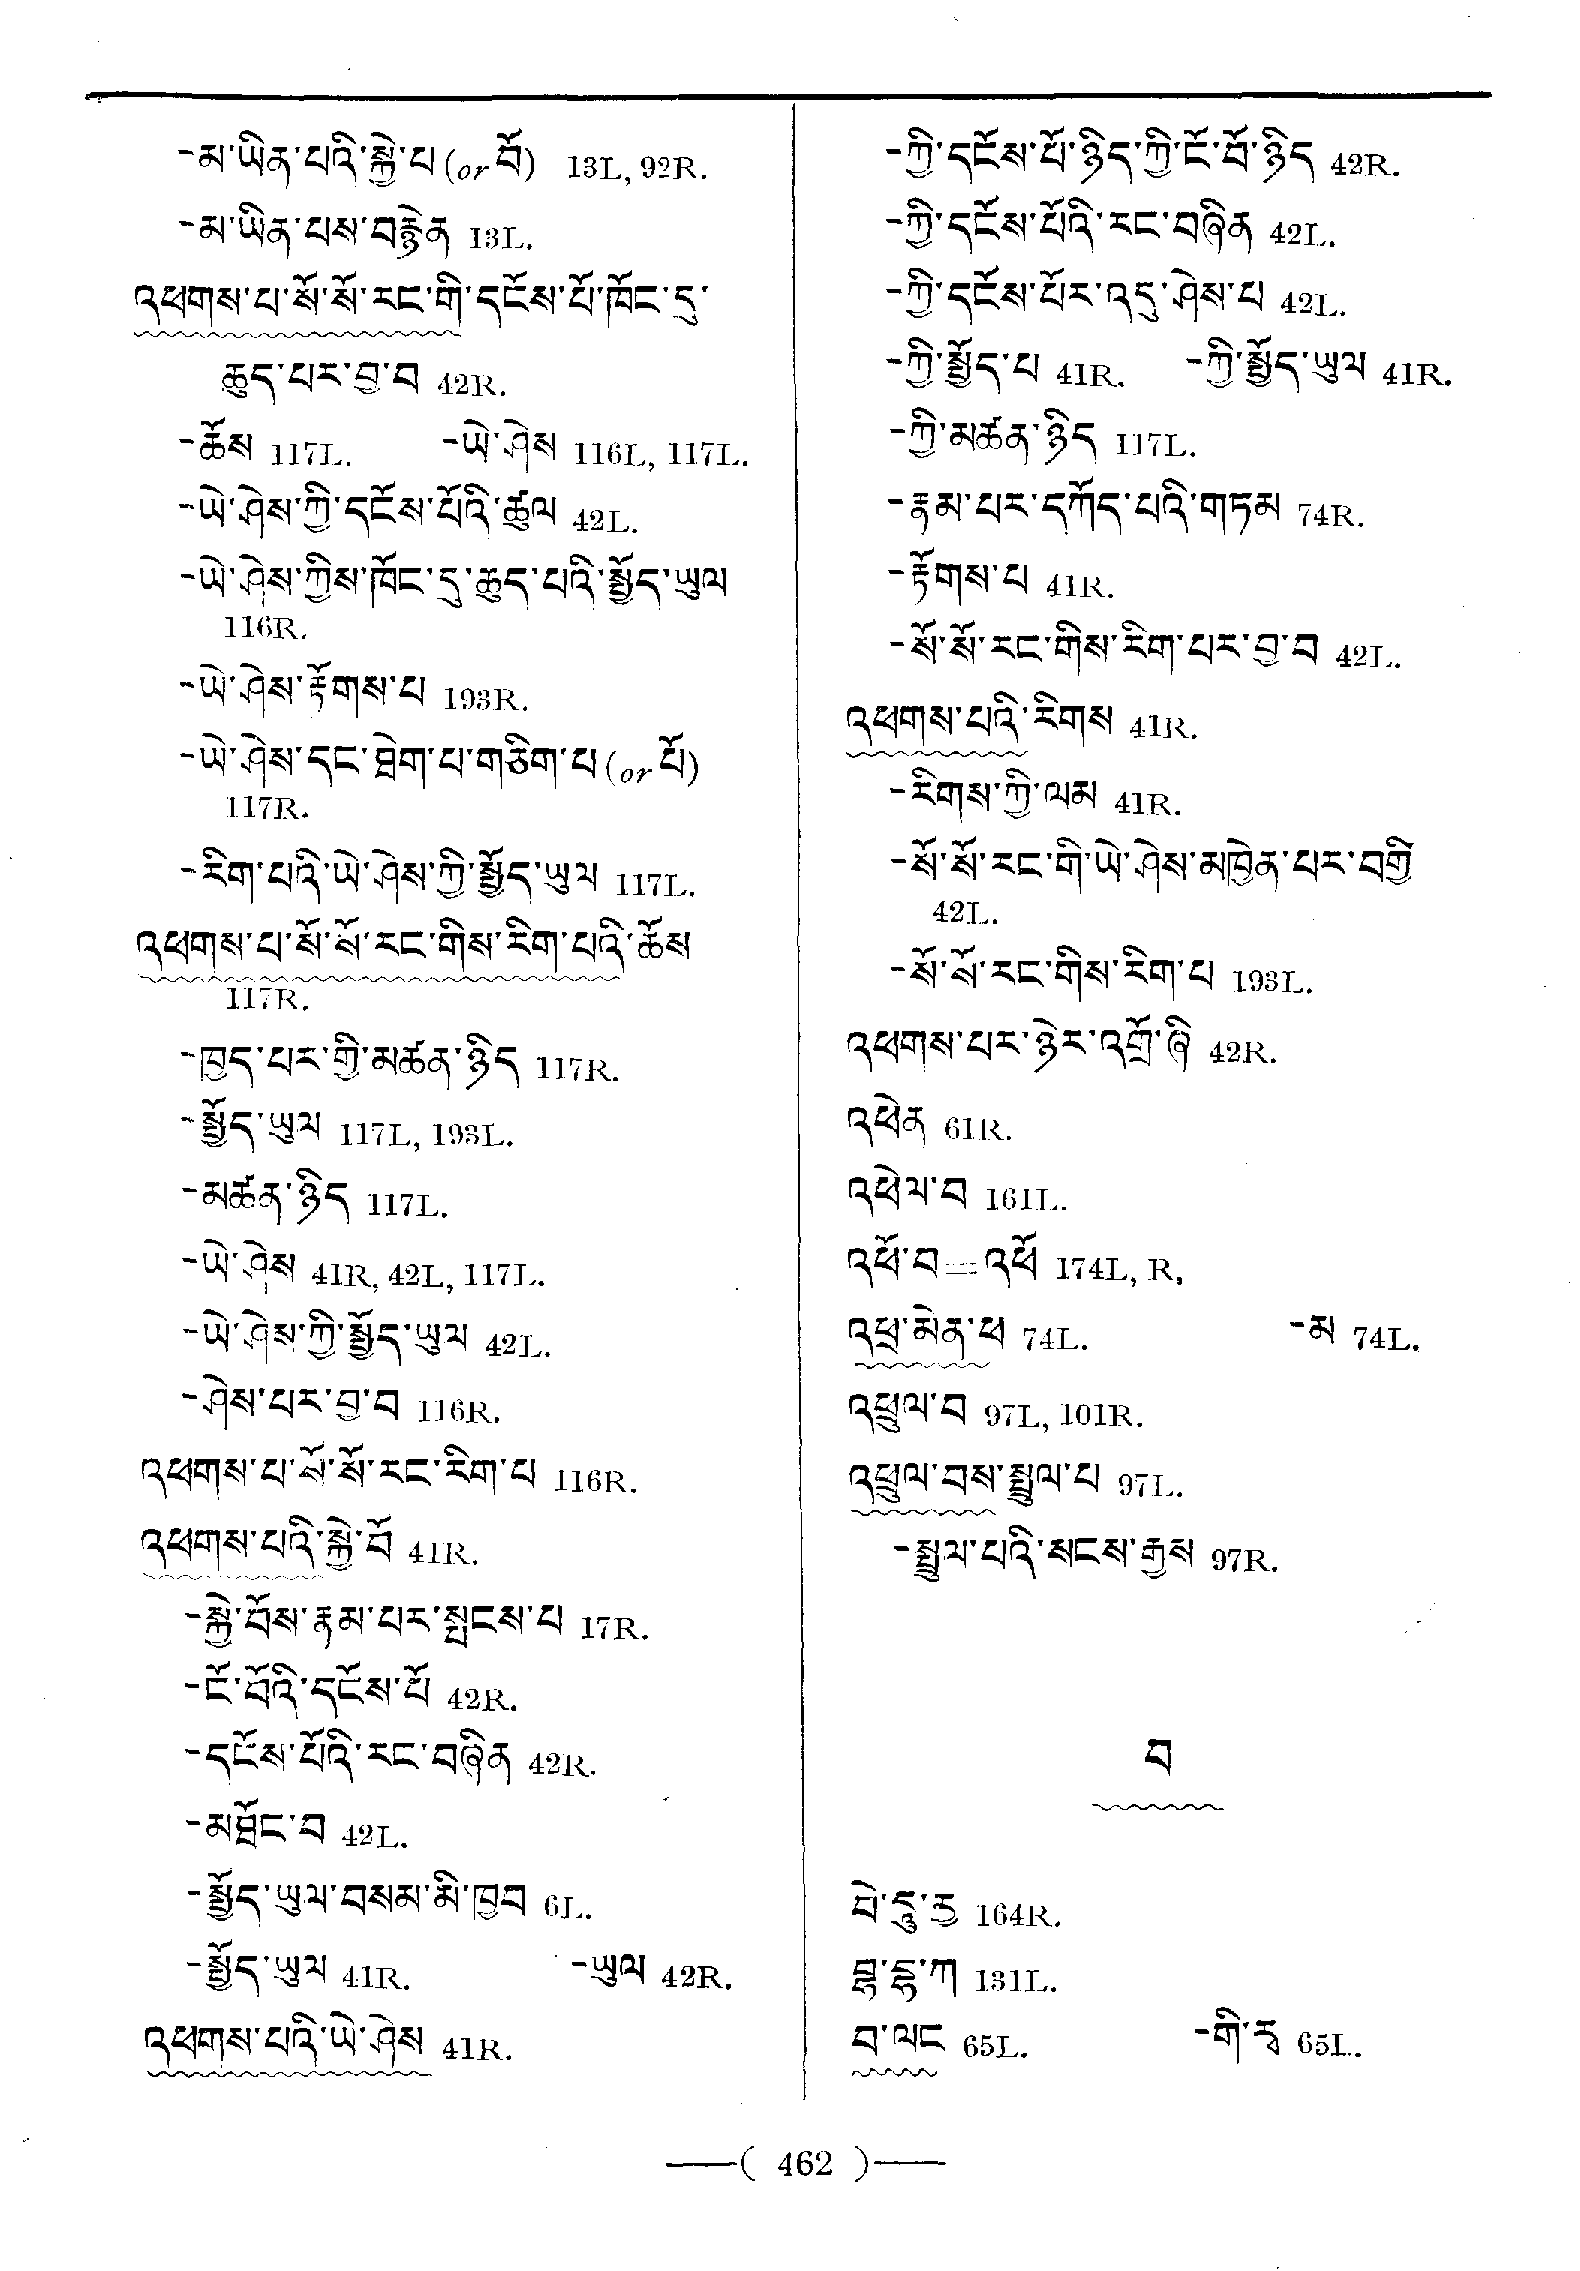 -མ་ཡིན་པའི་སྐྱེ་པ (or བོ) 13L, 92R.
-མ་ཡིན་པས་བརྙེན 13L.
འཕགས་པ་སོ་སོ་རང་གི་དངོས་པོ་ཁོང་དུ་
ཆུད་པར་བྱ་བ 42R.
-ཆོས 117L. -ཡེ་ཤེས 116L, 117L.
-ཡེ་ཤེས་ཀྱི་དངོས་པོའི་ཚུལ 42L.
-ཡེ་ཤེས་ཀྱིས་ཁོང་དུ་ཆུད་པའི་སྤྱོད་ཡུལ
116R.
-ཡེ་ཤེས་རྟོགས་པ 193R.
-ཡེ་ཤེས་དང་ཐེག་པ་གཅིག་པ (or པོ)
117R.
-རིག་པའི་ཡེ་ཤེས་ཀྱི་སྤྱོད་ཡུལ 117L.
འཕགས་པ་སོ་སོ་རང་གིས་རིག་པའི་ཆོས
117R.
-ཁྱད་པར་གྱི་མཚན་ཉིད 117R.
-སྤྱོད་ཡུལ 117L, 193L.
-མཚན་ཉིད 117L.
-ཡེ་ཤེས 41R, 42L, 117L.
-ཡེ་ཤེས་ཀྱི་སྤྱོད་ཡུལ 42L.
-ཤེས་པར་བྱ་བ 116R.
འཕགས་པ་སོ་སོ་རང་རིག་པ 116R.
འཕགས་པའི་སྐྱེ་བོ 41R.
-སྐྱེ་བོས་རྣམ་པར་སྤངས་པ 17R.
-ངོ་བོའི་དངོས་པོ 42R.
-དངོས་པོའི་རང་བཞིན 42R.
-མཐོང་བ 42L.
-སྤྱོད་ཡུལ་བསམ་མི་ཁྱབ 6L.
-སྤྱོད་ཡུལ 41R. -ཡུལ 42R.
འཕགས་པའི་ཡེ་ཤེས 41R.
-ཀྱི་དངོས་པོ་ཉིད་ཀྱི་ངོ་བོ་ཉིད 42R.
-ཀྱི་དངོས་པོའི་རང་བཞིན 42L.
-ཀྱི་དངོས་པོར་འདུ་ཤེས་པ 42L.
-ཀྱི་སྤྱོད་པ 41R. -ཀྱི་སྤྱོད་ཡུལ 41R.
-ཀྱི་མཚན་ཉིད 117L.
-རྣམ་པར་དཀོད་པའི་གཏམ 74R.
-རྟོགས་པ 41R.
-སོ་སོ་རང་གིས་རིག་པར་བྱ་བ 42L.
འཕགས་པའི་རིགས 41R.
-རིགས་ཀྱི་ལམ 41R.
-སོ་སོ་རང་གི་ཡེ་ཤེས་མཁྱེན་པར་བགྱི
42L.
-སོ་སོ་རང་གིས་རིག་པ 193L.
འཕགས་པར་ཉེར་འགྲོ་ཞི 42R.
འཕེན 61R.
འཕེལ་བ 161L.
འཕོ་བ = འཕོ 174L, R,
འཕྲ་མེན་ཕ 74L. -མ 74L.
འཕྲུལ་བ 97L, 101R.
འཕྲུལ་བས་སྤྲུལ་པ 97L.
-སྤྲུལ་པའི་སངས་རྒྱས 97R.
བ
བེ་དཱུ་རྱ 164R.
བྷ་དྷ་ཀ 131L.
བ་ལང 65L. -གི་རྭ 65L.
—( 462 )—